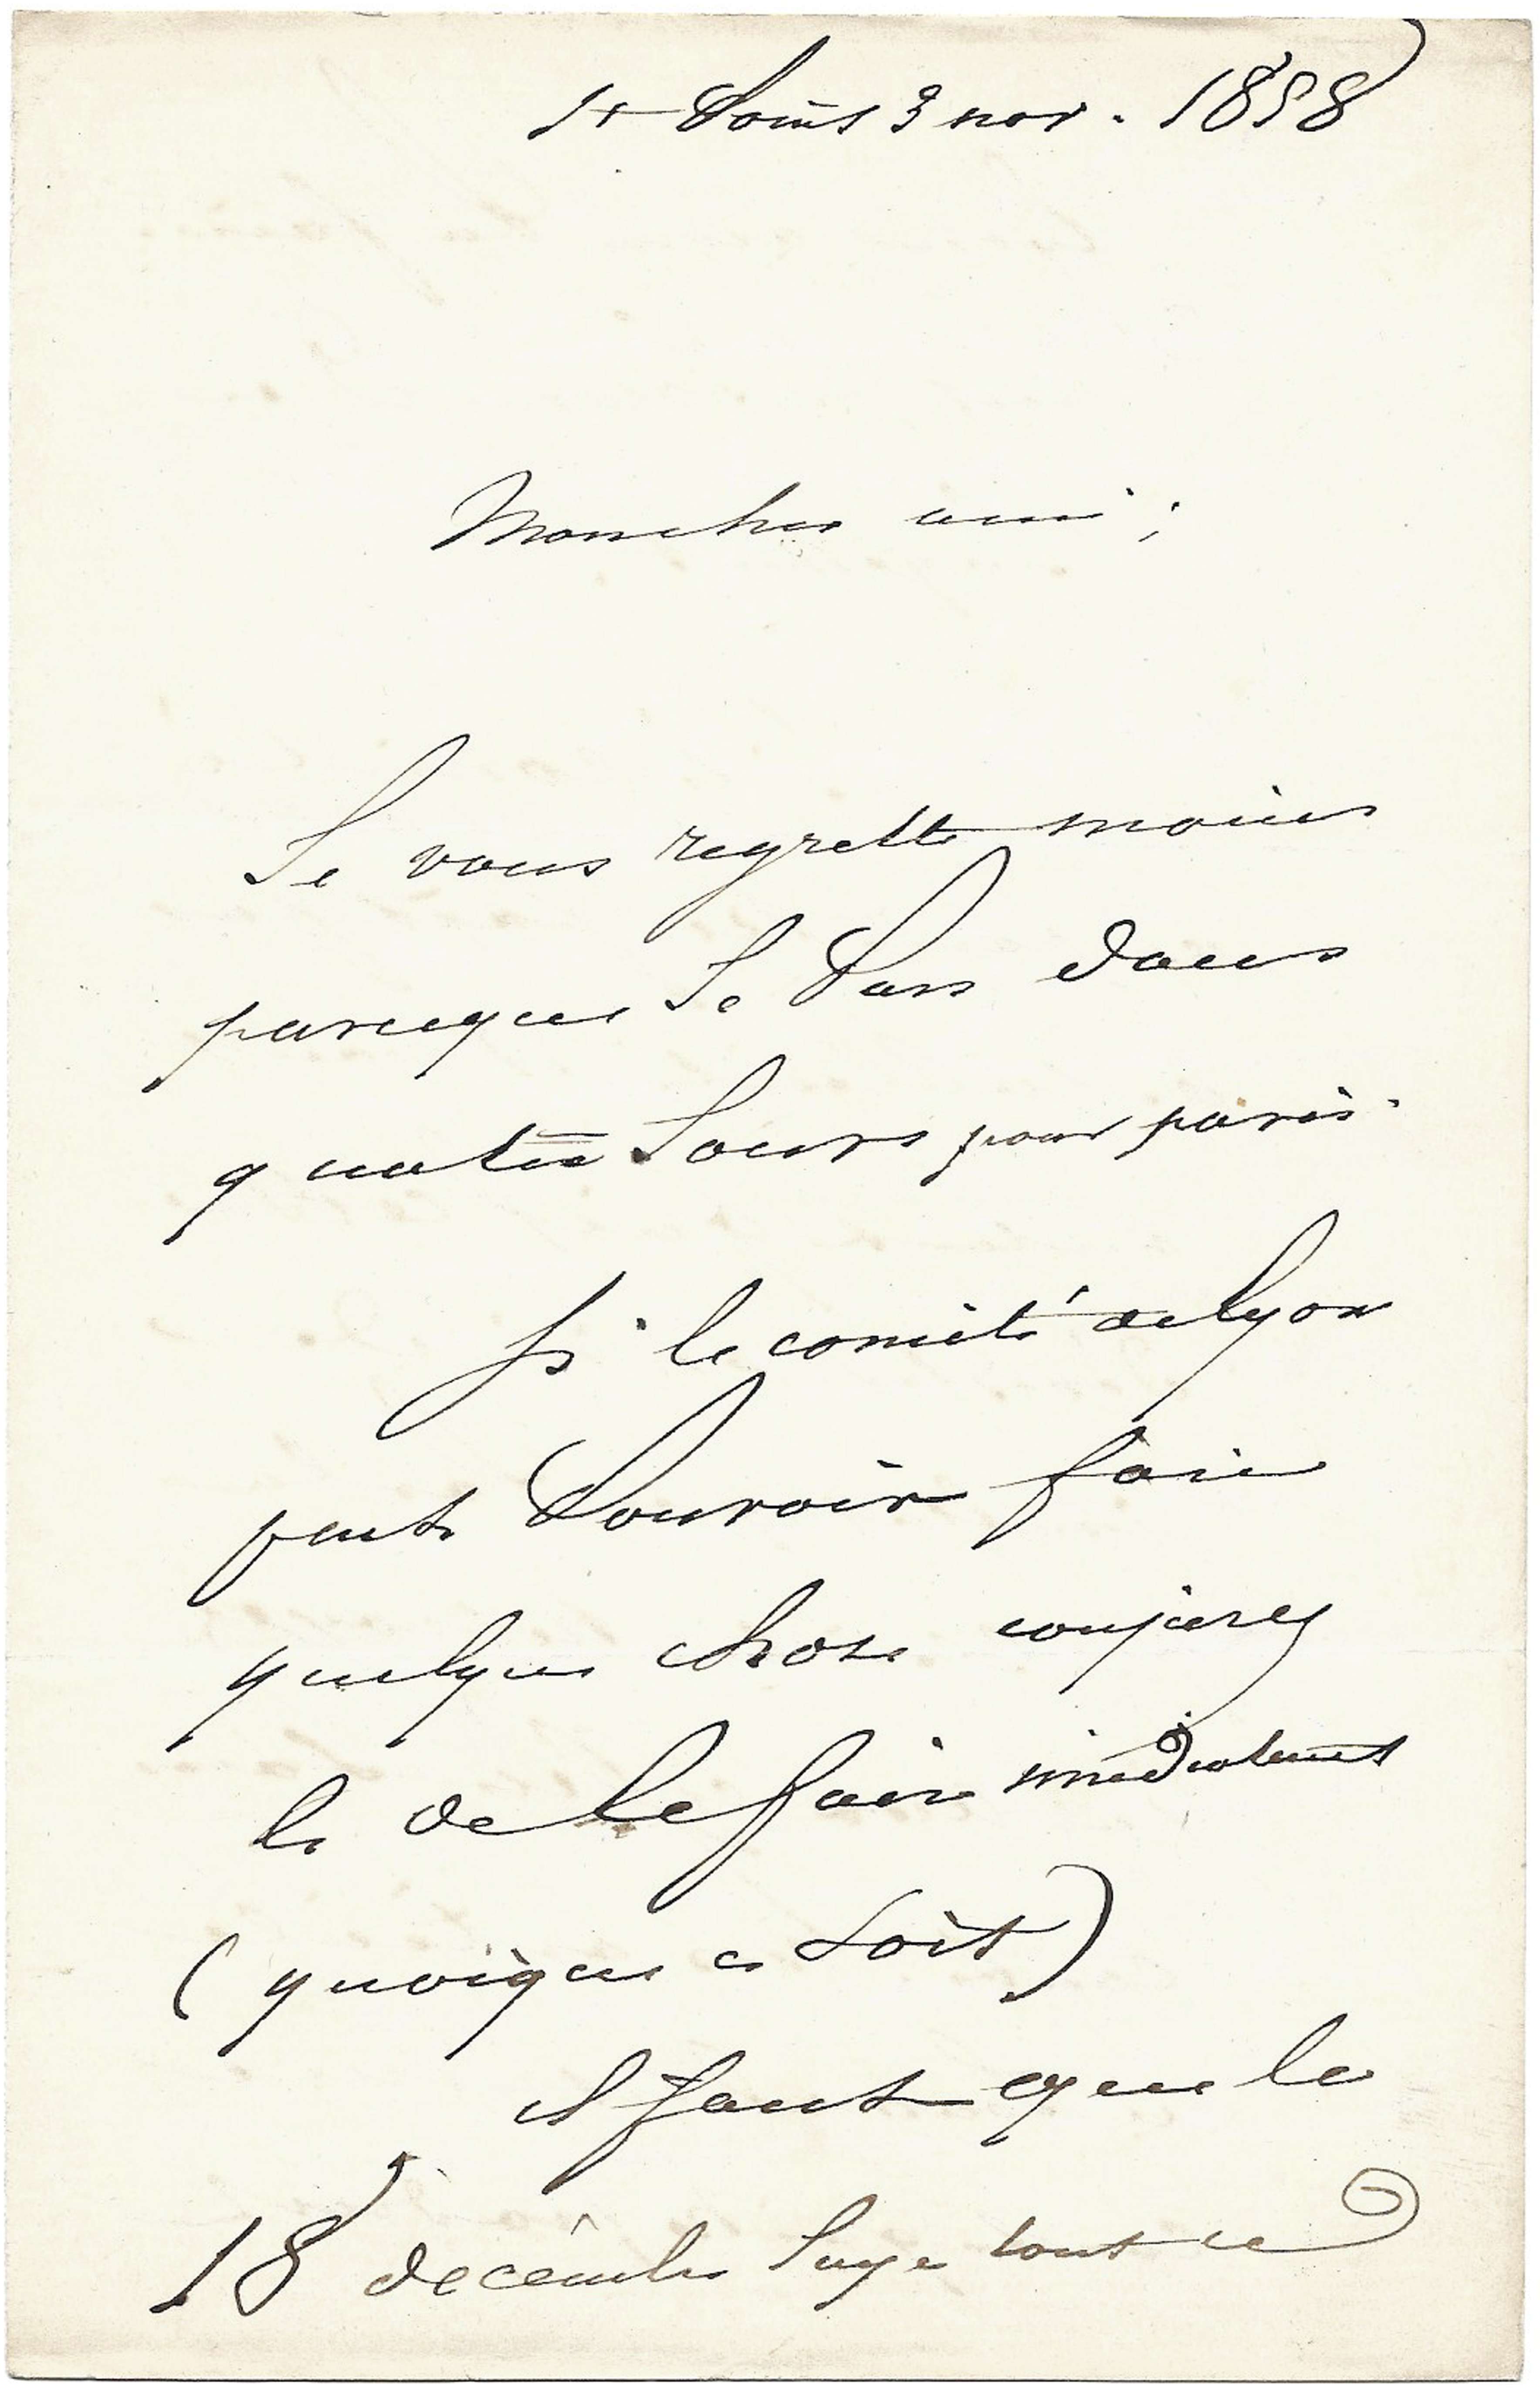 St Point 3 nov. 1858
Mon cher ami ;
Je vous regrette moins
parceque Je Pars dans
quatre Jours pour paris.
Si le comité de Lyon
peut Pouvoir faire
quelque chose conjurez
le de le faire immédiatement
(quoique ce soit)
Il faut que le
18 décembre Juge tout ce